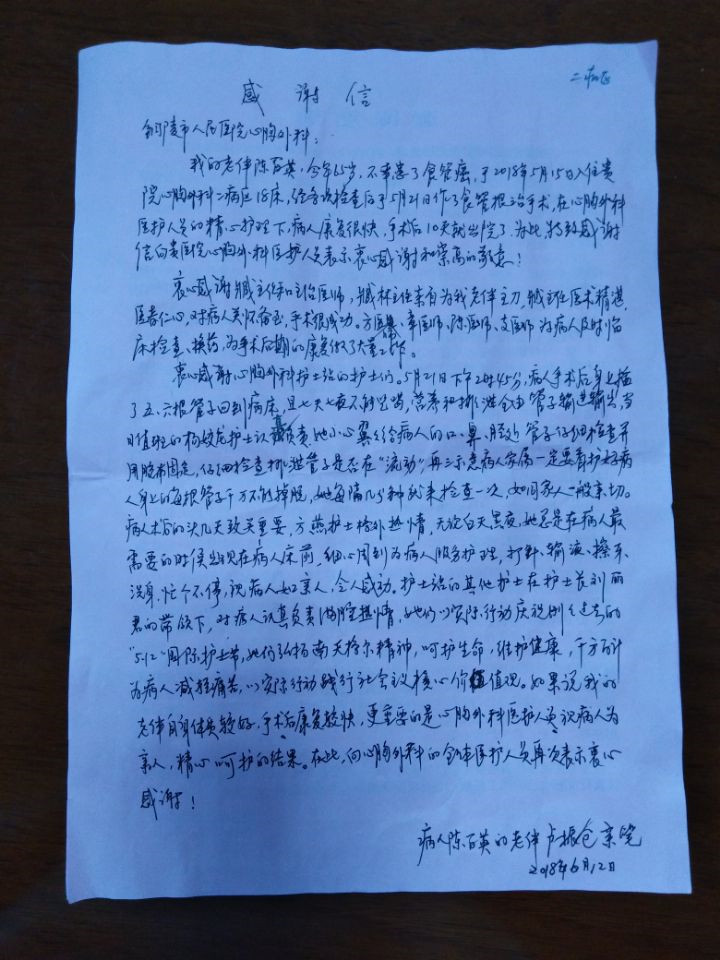 二病区
感谢信
铜陵市人民医院心胸外科：
我的老伴陈百英，今年65岁，不幸患了食管癌，于2018年5月15日入住贵
院心胸外科二病区18床，经各项检查后于5月21日作了食管根治手术，在心胸外科
医护人员的精心护理下，病人康复很快，手术后10天就出院了。为此，特致感谢
信向贵医院心胸外科医护人员表示衷心感谢和崇高的敬意！
衷心感谢臧主任和主治医师，臧林主任亲自为我老伴主刀，臧主任医术精湛，
医者仁心，对病人关怀备至，手术很成功。方医师、章医师、陈医师、支医师为病人及时临
床检查、换药，为手术后期的康复做了大量工作。
衷心感谢心胸外科护士站的护士们。5月21日下午2时45分，病人手术后身上插
了五、六根管子回到病床，且七天七夜不能吃喝，营养和排泄全由管子输进输出，当
日值班的杨姣龙护士认真负责，她小心翼翼给病人的口、鼻、腔处管子仔细检查并
用胶布固定，仔细检查排泄管子是否在“流动”再三示意病人家属一定要看护好病
人身上的每根管子千万不能掉脱，她每隔几分种就来检查一次，如同家人一般亲切。
病人术后的头几天致关重要，方燕护士格外热情，无论白天黑夜，她总是在病人最
需要的时侯出现在病人床前，细心周到为病人服务护理，打针、输液、擦身、
洗身、忙个不停，视病人如亲人，令人感动。护士站的其他护士在护士长刘丽
君的带领下，对病人认真负责，满腔热情，她们以实际行动庆祝刚刚过去的
“5.12”国际护士节，她们弘扬南天格尔精神，呵护生命，维护健康，千方百计
为病人减轻痛苦，以实际行动践行社会主义核心价值观。如果说我的
老伴自身体质较好，手术后康复较快，更重要的是心胸外科医护人员视病人为
亲人，精心呵护的结果。在此，向心胸外科的全体医护人员再次表示衷心
感谢！
病人陈百英的老伴卢振仓亲笔
2018年6月12日